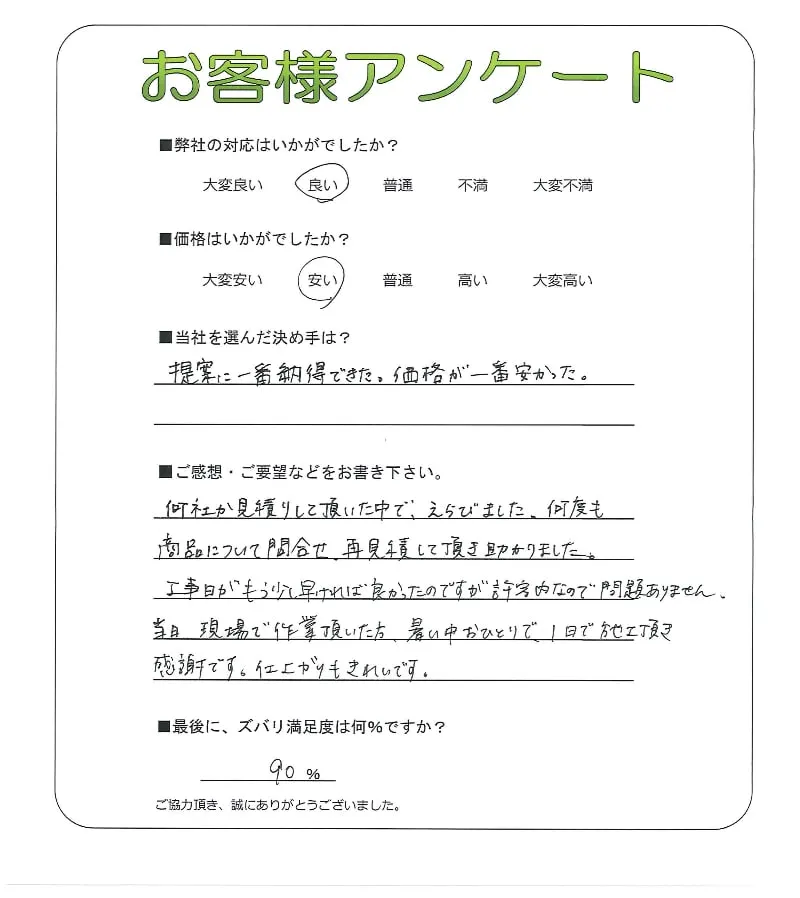 お客様アンケート
■弊社の対応はいかがでしたか？
大変良い 良い 普通 不満 大変不満
■価格はいかがでしたか？
大変安い 安い 普通 高い 大変高い
■当社を選んだ決め手は？
提案に一番納得できた。価格が一番安かった。
■ご感想・ご要望などをお書き下さい。
何社か見積りして頂いた中で、えらびました。何度も
商品について問合せ、再見積して頂き助かりました。
工事日がもう少し早ければ良かったのですが許容内なので問題ありません。
当日 現場で作業頂いた方、暑い中おひとりで、1日で施工頂き
感謝です。仕上がりもきれいです。
■最後に、ズバリ満足度は何％ですか？
90 %
ご協力頂き、誠にありがとうございました。